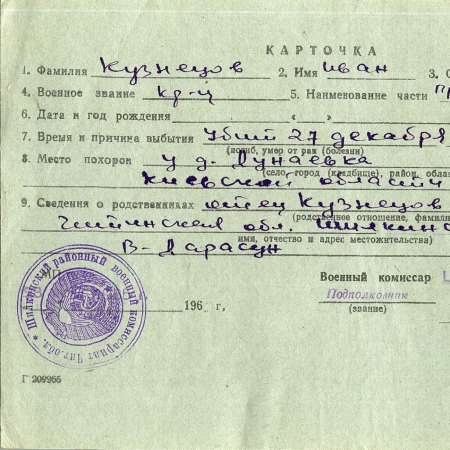 КАРТОЧКА
1. Фамилия Кузнецов 2. Имя Иван 3. О
4. Военное звание кр-ц 5. Наименование части
6. Дата и год рождения « »
7. Время и причина выбытия Убит 27 декабря
(погиб, умер от ран (болезни)
8. Место похорон у д. Дунаевка
(село, город (кладбище), район, облас
Киевской области
9. Сведения о родственниках отец Кузнецов
(родственное отношение, фамилия
Читинская обл. Шилкинс
имя, отчество и адрес местожительства)
В-Дарасун
Военный комиссар
Подполковник
(звание)
196 г,
МП
* Шилкинский районный военный комиссариат Чит. обл.
Г 209955